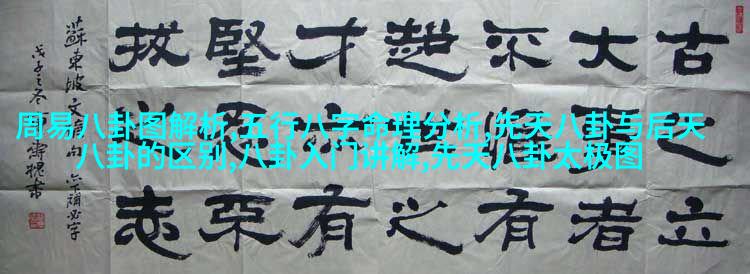 周易八卦图解析,五行八字命理分析,先天八卦与后天
八卦的区别,八卦入门讲解,先天八卦太极图
古之立
大事者
不惟有
超世之
才亦有
堅忍不
拔之志
蘇東坡文摘句 亦下漏必字
戊子之冬 書